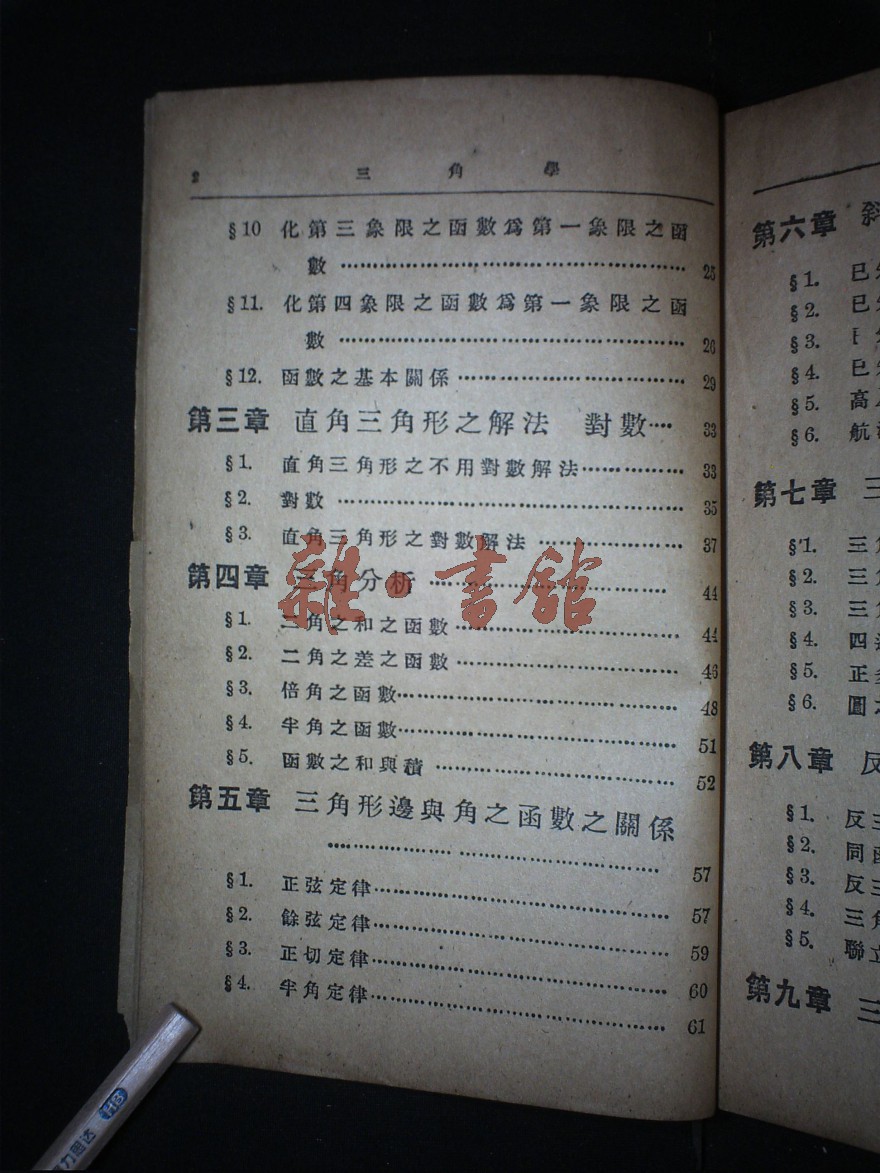 2 三角學
§10 化第三象限之函數爲第一象限之函
數 …… 25
§11. 化第四象限之函數爲第一象限之函
數 …… 26
§12. 函數之基本關係 …… 29
第三章 直角三角形之解法 對數 …… 33
§1. 直角三角形之不用對數解法 …… 33
§2. 對數 …… 35
§3. 直角三角形之對數解法 …… 37
第四章 三角分析 …… 44
§1. 二角之和之函數 …… 44
§2. 二角之差之函數 …… 46
§3. 倍角之函數 …… 48
§4. 半角之函數 …… 51
§5. 函數之和與積 …… 52
第五章 三角形邊與角之函數之關係
…… 57
§1. 正弦定律 …… 57
§2. 餘弦定律 …… 59
§3. 正切定律 …… 60
§4. 半角定律 …… 61
雜·書館
HB
第六章 斜
§1. 已
§2. 已
§3.
§4. 已
§5. 高
§6. 航
第七章 三
§1. 三角
§2. 三角
§3. 三角
§4. 四
§5. 正多
§6. 圓
第八章 反
§1. 反三
§2. 同函
§3. 反三
§4. 三角
§5. 聯立
第九章 三